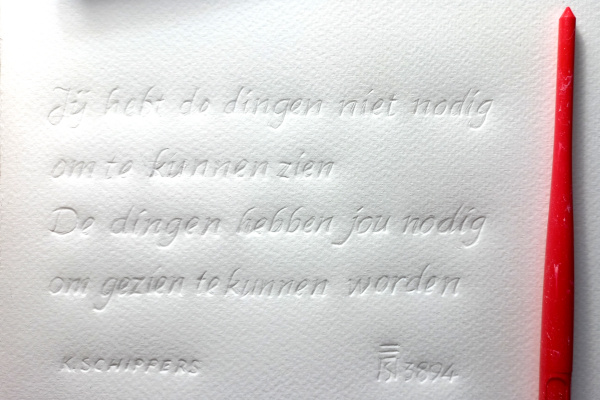 Jij hebt de dingen niet nodig
om te kunnen zien
De dingen hebben jou nodig
om gezien te kunnen worden
K. SCHIPPERS 3894